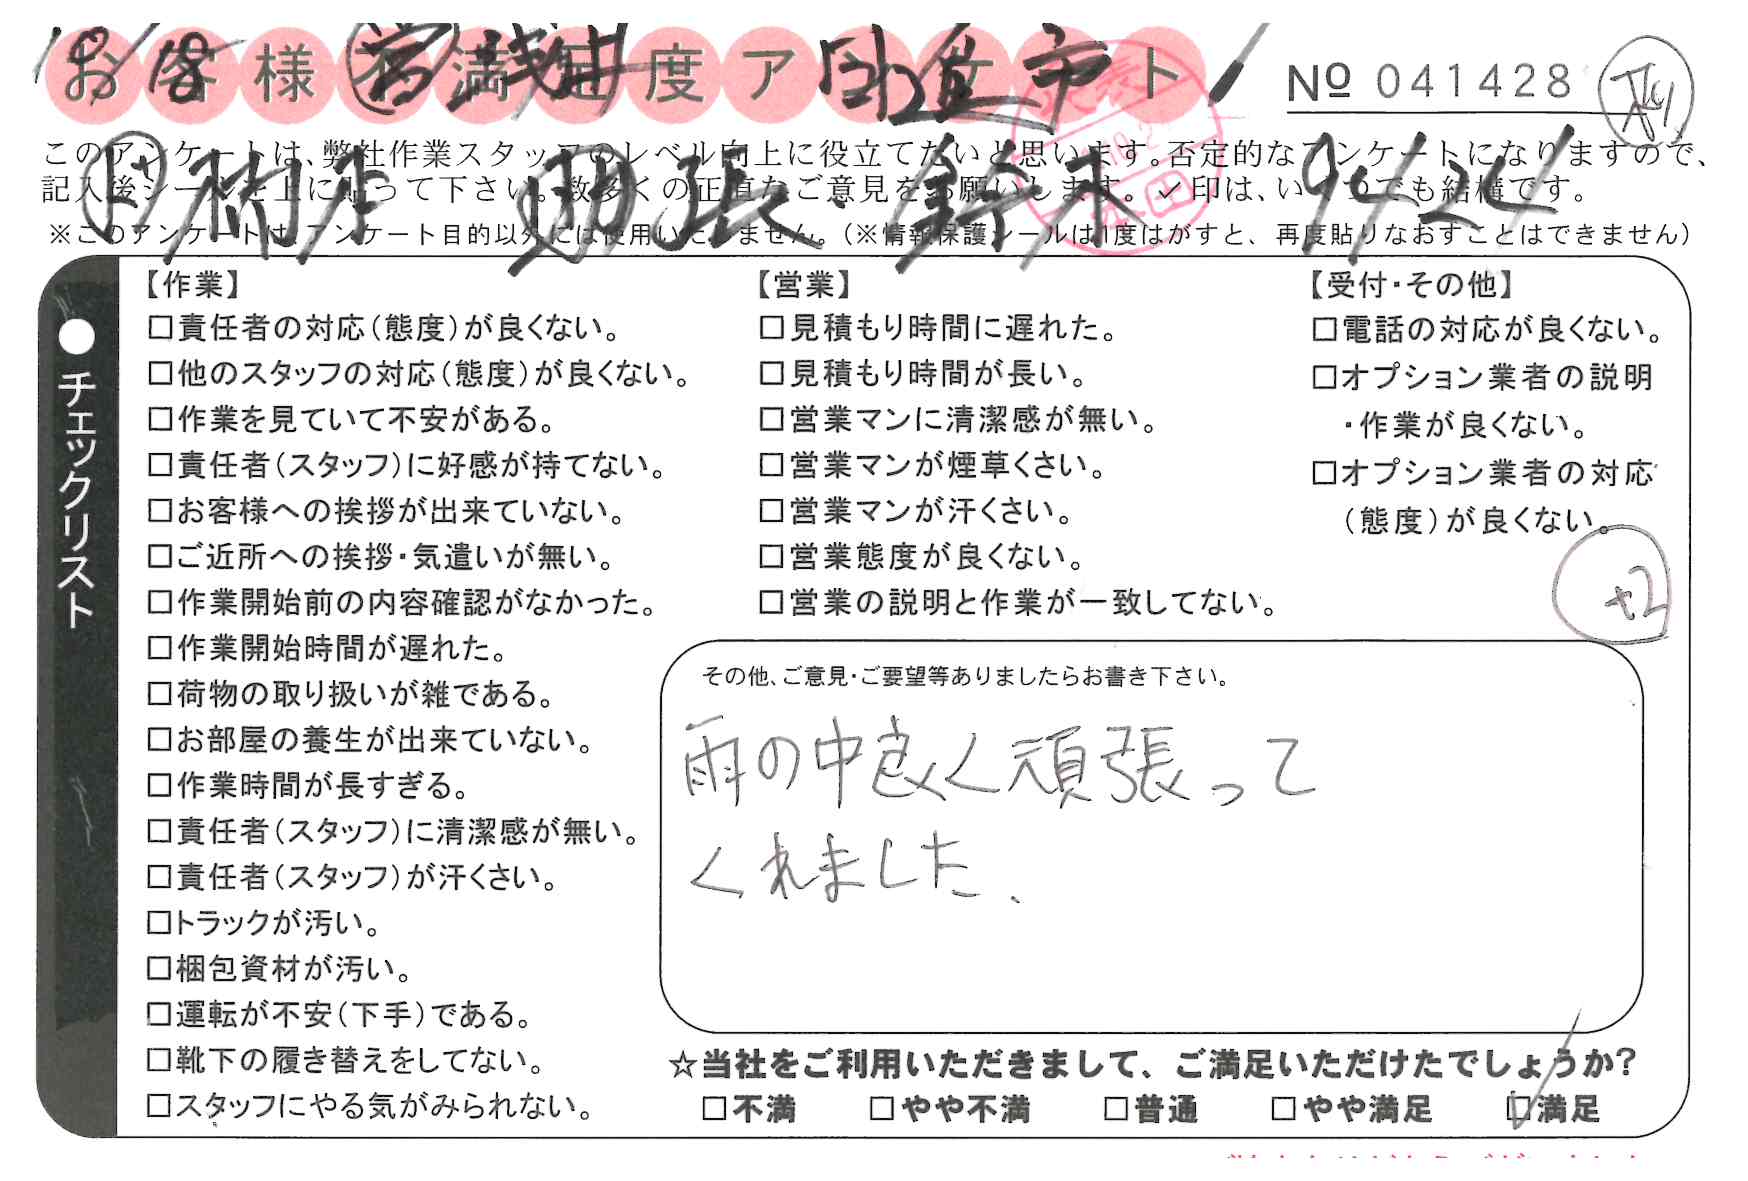 お客様不満足度アンケート
№ 041428
このアンケートは、弊社作業スタッフのレベル向上に役立てたいと思います。否定的なアンケートになりますので、
記入後シールを上に貼って下さい。数多くの正直なご意見をお願いします。✓印は、いくつでも結構です。
※このアンケートは、アンケート目的以外には使用いたしません。(※情報保護シールは1度はがすと、再度貼りなおすことはできません)
●チェックリスト
【作業】
□責任者の対応(態度)が良くない。
□他のスタッフの対応(態度)が良くない。
□作業を見ていて不安がある。
□責任者(スタッフ)に好感が持てない。
□お客様への挨拶が出来ていない。
□ご近所への挨拶・気遣いが無い。
□作業開始前の内容確認がなかった。
□作業開始時間が遅れた。
□荷物の取り扱いが雑である。
□お部屋の養生が出来ていない。
□作業時間が長すぎる。
□責任者(スタッフ)に清潔感が無い。
□責任者(スタッフ)が汗くさい。
□トラックが汚い。
□梱包資材が汚い。
□運転が不安(下手)である。
□靴下の履き替えをしてない。
□スタッフにやる気がみられない。
【営業】
□見積もり時間に遅れた。
□見積もり時間が長い。
□営業マンに清潔感が無い。
□営業マンが煙草くさい。
□営業マンが汗くさい。
□営業態度が良くない。
□営業の説明と作業が一致してない。
【受付・その他】
□電話の対応が良くない。
□オプション業者の説明
・作業が良くない。
□オプション業者の対応
(態度)が良くない。
+2
その他、ご意見・ご要望等ありましたらお書き下さい。
雨の中良く頑張って
くれました、
☆当社をご利用いただきまして、ご満足いただけたでしょうか?
□不満 □やや不満 □普通 □やや満足 ☑満足